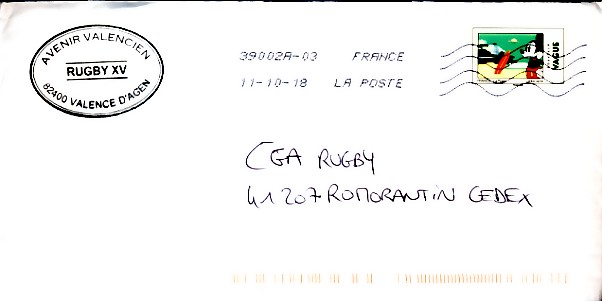 AVENIR VALENCIEN
RUGBY XV
82400 VALENCE D'AGEN
39002A-03 FRANCE
11-10-18 LA POSTE
VAGUE
CGA RUGBY
41207 ROMORANTIN CEDEX